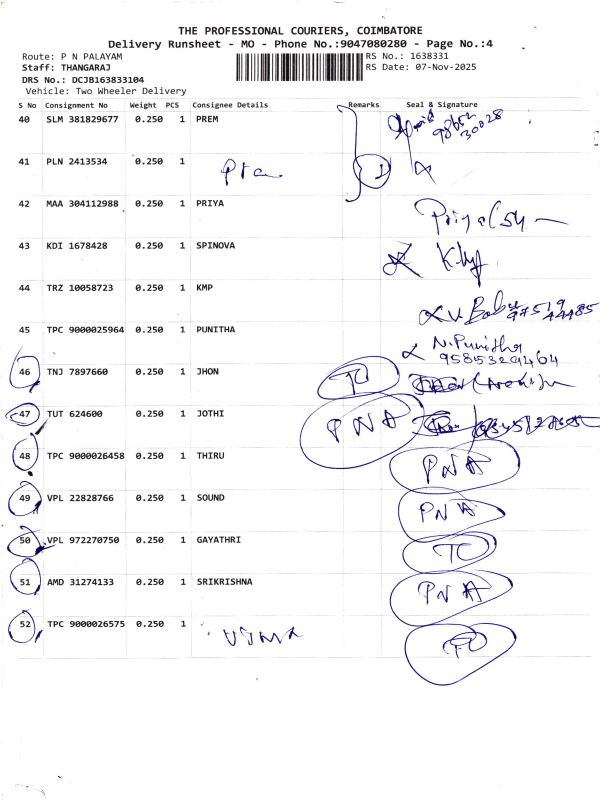 THE PROFESSIONAL COURIERS, COIMBATORE
Delivery Runsheet - MO - Phone No.:9047080280 - Page No.:4
Route: P N PALAYAM RS No.: 1638331
Staff: THANGARAJ RS Date: 07-Nov-2025
DRS No.: DCJB163833104
Vehicle: Two Wheeler Delivery
S No Consignment No Weight PCS Consignee Details Remarks Seal & Signature
40 SLM 381829677 0.250 1 PREM
41 PLN 2413534 0.250 1
42 MAA 304112988 0.250 1 PRIYA
43 KDI 1678428 0.250 1 SPINOVA
44 TRZ 10058723 0.250 1 KMP V. Babu
45 TPC 9000025964 0.250 1 PUNITHA N. Punitha
46 TNJ 7897660 0.250 1 JHON TO
47 TUT 624600 0.250 1 JOTHI PNA
48 TPC 9000026458 0.250 1 THIRU PNA
49 VPL 22828766 0.250 1 SOUND PNA
50 VPL 972270750 0.250 1 GAYATHRI TO
51 AMD 31274133 0.250 1 SRIKRISHNA PNA
52 TPC 9000026575 0.250 1 TO